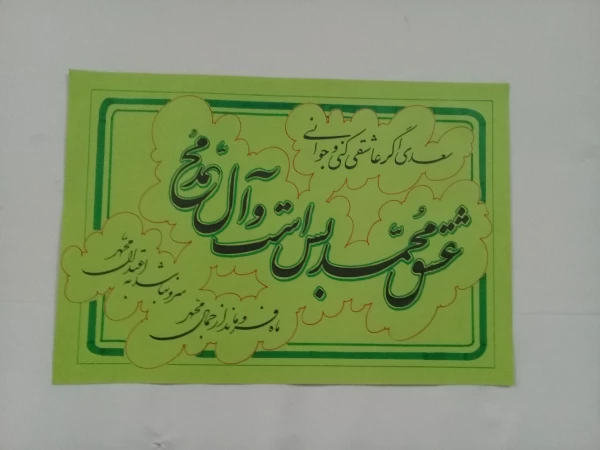 سعدی اگر عاشقی کنی و جوانی
عشق محمد بس است و آل محمد
ماه فروماند از جمال محمد
سرو نباشد به اعتدال محمد